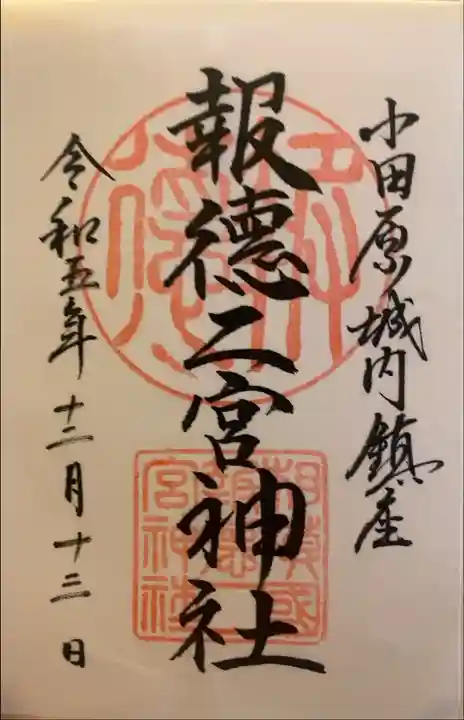 小田原城内鎮座
報徳二宮神社
令和五年十二月十三日
相模國
報徳二
宮神社